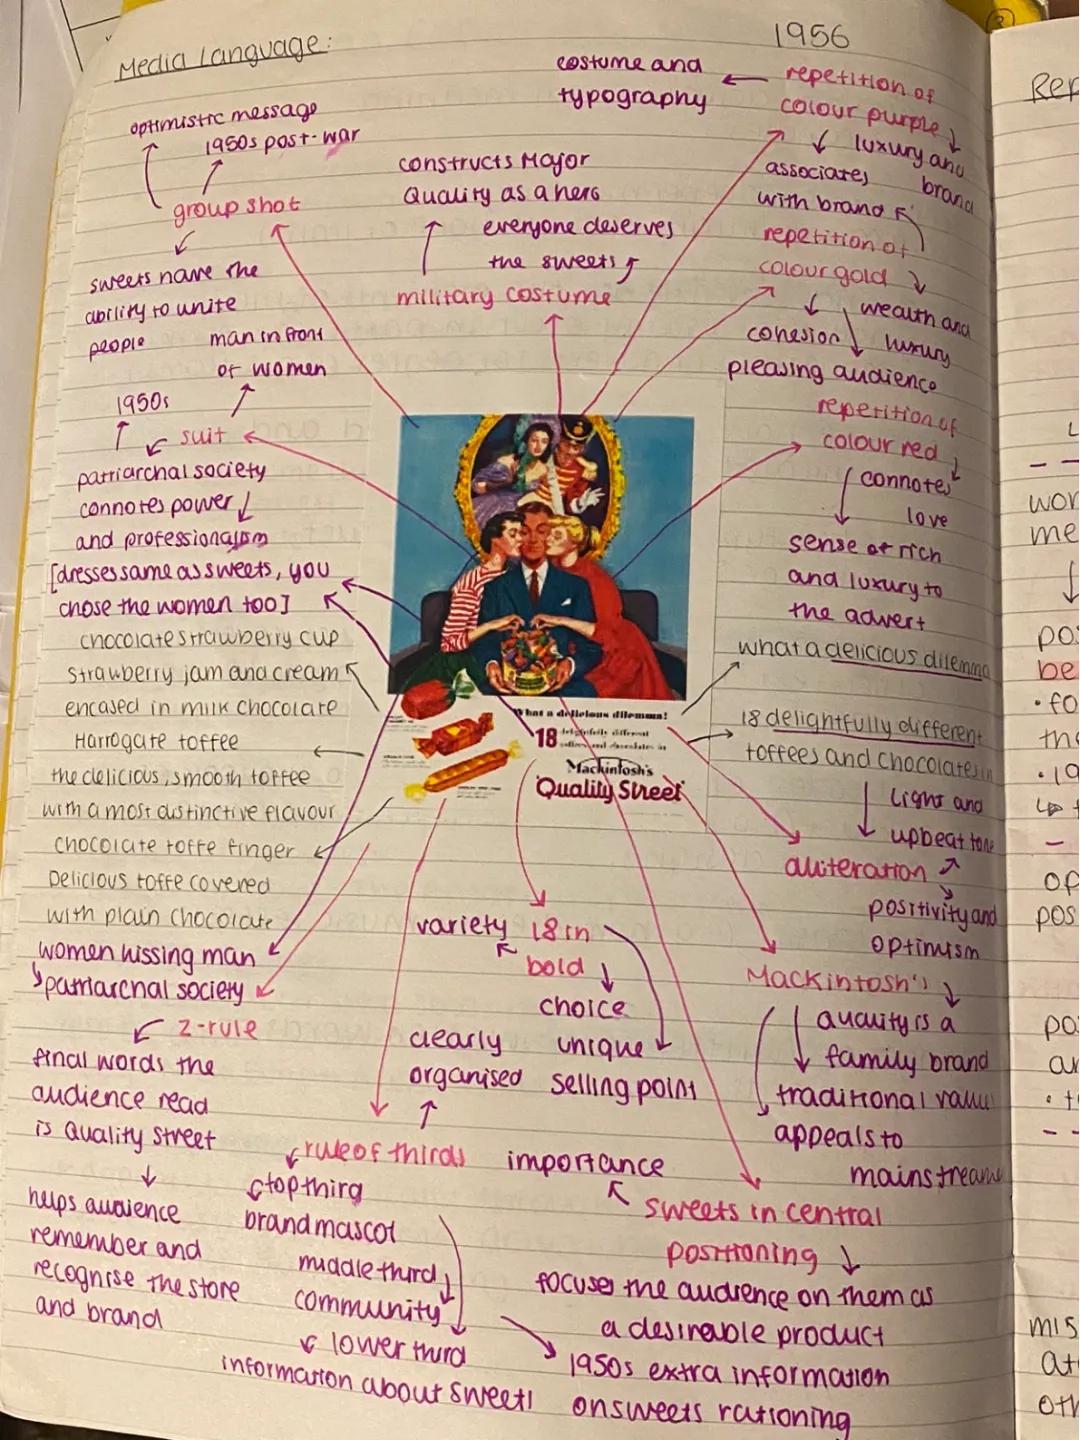 Media Language:
1956
optimistic message
1950s post-war
group shot
sweets have the
ability to unite
people
man in front
of women
1950s
suit
patriarchal society
connotes power
and professionalism
[dresses same as sweets, you
chose the women too]
chocolate strawberry cup
strawberry jam and cream
encased in milk chocolate
Harrogate toffee
the delicious, smooth toffee
with a most distinctive flavour
chocolate toffe finger
Delicious toffe covered
with plain chocolate
women kissing man
patriarchal society
z-rule
final words the
audience read
is Quality Street
helps audience
remember and
recognise the store
and brand
constructs Major
Quality as a hero
everyone deserves
the sweets
military costume
costume and
typography
repetition of
colour purple
luxury and
brand
associates
with brand
repetition of
colour gold
wealth and
luxury
cohesion
pleasing audience
repetition of
colour red
connotes
love
sense of rich
and luxury to
the advert
what a delicious dilemma
18 delightfully different
toffees and chocolates in
Light and
upbeat tone
aliteration
positivity and
optimism
Mackintosh's
quality is a
family brand
traditional value
appeals to
mainstreame
What a delicious dilemma!
18 delightfully different
toffees and chocolates in
Mackintosh's
'Quality Street'
variety
18 in
bold
choice
unique
selling point
clearly
organised
rule of thirds
top thirg
brand mascot
middle third
community
lower third
information about sweet
1950s extra information
on sweets rationing
importance
sweets in central
positioning
focuses the audience on them as
a desirable product
Rep
wor
me
pos
be
• fo
the
• 19
op
pos
po
ar
• t
mis
at
oth